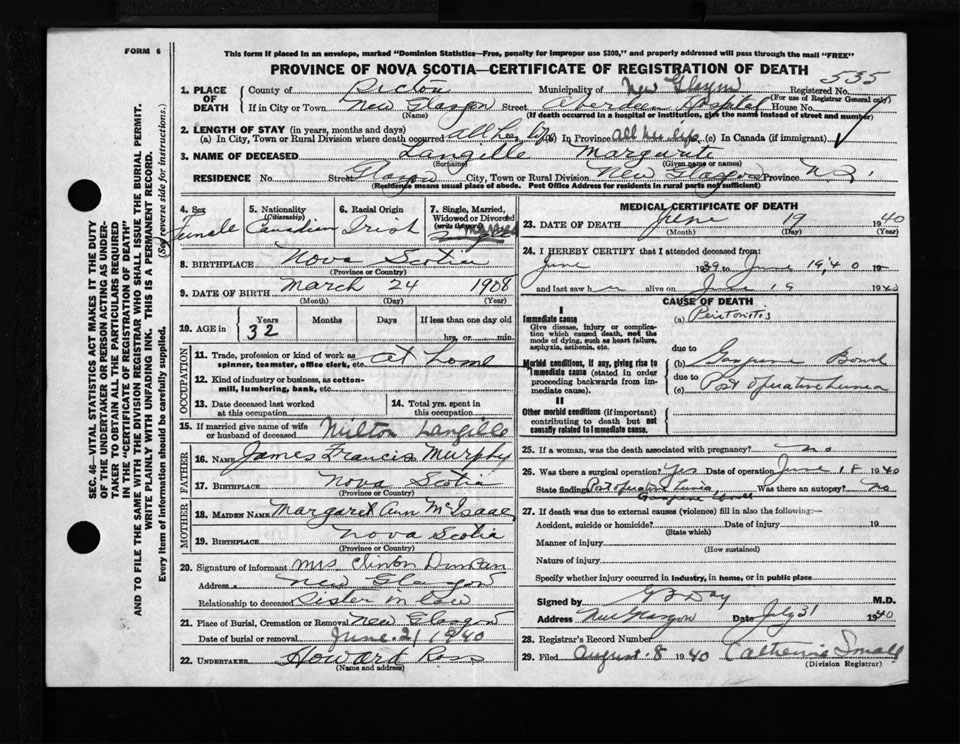 FORM 6
This form if placed in an envelope, marked "Dominion Statistics—Free, penalty for improper use $300," and properly addressed will pass through the mail "FREE"
PROVINCE OF NOVA SCOTIA—CERTIFICATE OF REGISTRATION OF DEATH
535
1. PLACE OF DEATH County of Pictou Municipality of New Glasgow Registered No.
(For use of Registrar General only)
If in City or Town New Glasgow Street Aberdeen Hospital House No.
(Name) (If death occurred in a hospital or institution, give the name instead of street and number)
2. LENGTH OF STAY (in years, months and days)
(a) In City, Town or Rural Division where death occurred all her life (b) In Province all her life (c) In Canada (if immigrant)
3. NAME OF DECEASED Langille Margurite
(Surname) (Given name or names)
RESIDENCE No. Street City, Town or Rural Division New Glasgow Province N.S.
(Residence means usual place of abode. Post Office Address for residents in rural parts not sufficient)
4. Sex Female
5. Nationality (Citizenship) Canadian
6. Racial Origin Irish
7. Single, Married, Widowed or Divorced (write the word)
8. BIRTHPLACE Nova Scotia
(Province or Country)
9. DATE OF BIRTH March 24 1908
(Month) (Day) (Year)
10. AGE in Years Months Days If less than one day old
32 hrs. or min.
OCCUPATION
11. Trade, profession or kind of work as spinner, teamster, office clerk, etc. at home
12. Kind of industry or business, as cotton-mill, lumbering, bank, etc.
13. Date deceased last worked at this occupation
14. Total yrs. spent in this occupation
15. If married give name of wife or husband of deceased Milton Langille
FATHER
16. Name James Francis Murphy
17. Birthplace Nova Scotia
(Province or Country)
MOTHER
18. Maiden Name Margaret Ann McIsaac
19. Birthplace Nova Scotia
(Province or Country)
20. Signature of informant Mrs Clinton Dunkan
Address New Glasgow
Relationship to deceased Sister in law
21. Place of Burial, Cremation or Removal New Glasgow
Date of burial or removal June 21 1940
22. UNDERTAKER Howard Ross
(Name and address)
MEDICAL CERTIFICATE OF DEATH
23. DATE OF DEATH June 19 1940
(Month) (Day) (Year)
24. I HEREBY CERTIFY that I attended deceased from:
June 1939 to June 19, 40 19
and last saw her alive on June 19 1940
CAUSE OF DEATH
I
Immediate cause
Give disease, injury or complication which caused death, not the mode of dying, such as heart failure, asphyxia, asthenia, etc.
(a) Peritonitis
due to
Morbid conditions, if any, giving rise to immediate cause (stated in order proceeding backwards from immediate cause).
(b) Gangrene Bowel
due to
(c) Post operative
II
Other morbid conditions (if important) contributing to death but not causally related to immediate cause.
25. If a woman, was the death associated with pregnancy? no
26. Was there a surgical operation? Yes Date of operation June 18 1940
State findings Post operative Was there an autopsy? No
Gangrene Bowel
27. If death was due to external causes (violence) fill in also the following:—
Accident, suicide or homicide? Date of injury 19
(State which)
Manner of injury
(How sustained)
Nature of injury
Specify whether injury occurred in industry, in home, or in public place
Signed by Day M.D.
Address New Glasgow Date July 31 1940
28. Registrar's Record Number
29. Filed August 8 1940 Catherine Small
(Division Registrar)
SEC. 46—VITAL STATISTICS ACT MAKES IT THE DUTY
OF THE UNDERTAKER OR PERSON ACTING AS UNDER-
TAKER TO OBTAIN ALL THE PARTICULARS REQUIRED
IN THE "CERTIFICATE OF REGISTRATION OF DEATH"
AND TO FILE THE SAME WITH THE DIVISION REGISTRAR WHO SHALL ISSUE THE BURIAL PERMIT.
WRITE PLAINLY WITH UNFADING INK. THIS IS A PERMANENT RECORD.
Every item of information should be carefully supplied. (See reverse side for instructions.)